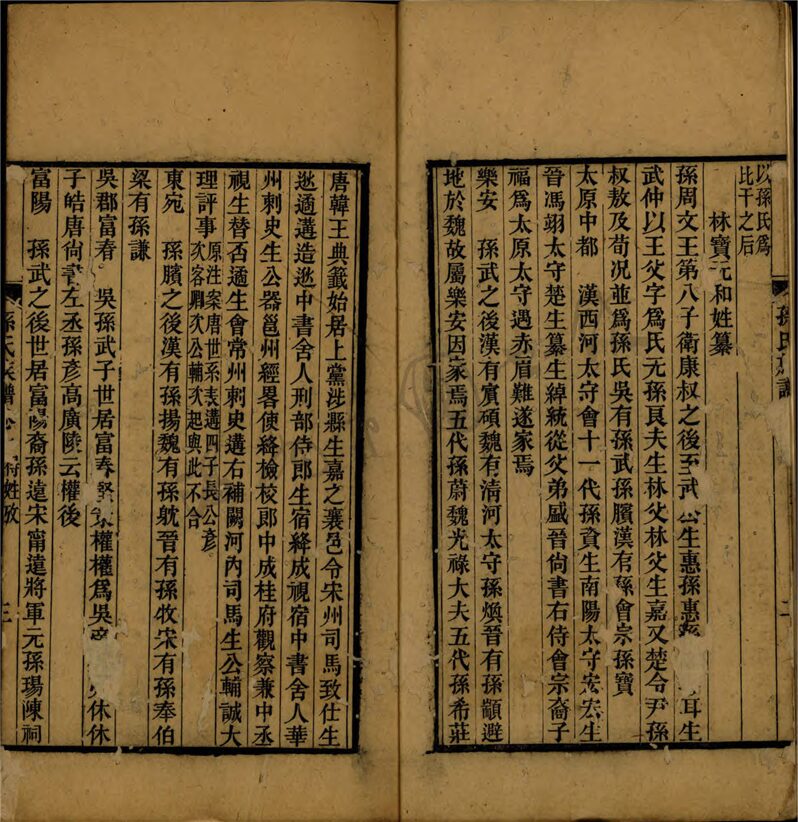 以孫氏爲
比干之后
林寶元和姓纂
孫周文王第八子衛康叔之後至武公生惠孫惠 耳生
武仲以王父字爲氏元孫良夫生林父林父生嘉又楚令尹孫
叔敖及荀况並爲孫氏吳有孫武孫臏漢有孫會宗孫寶
太原中都　漢西河太守會十一代孫資生南陽太守宏宏生
晉馮翊太守楚生纂生綽統從父弟盛晉尙書右侍會宗裔子
福爲太原太守遇赤眉難遂家焉
樂安　孫武之後漢有賓碩魏有清河太守孫煥晉有孫顗避
地於魏故屬樂安因家焉五代孫蔚魏光祿大夫五代孫希莊
孫氏 譜
二
唐韓王典籤始居上黨涉縣生嘉之襄邑令宋州司馬致仕生
逖遹遘造逖中書舍人刑部侍郎生宿絳成視宿中書舍人華
州刺史生公器邕州經畧使絳檢校郎中成桂府觀察兼中丞
視生替否遹生會常州刺史遘右補闕河內司馬生公輔誠大
理評事
原注案唐世系表遘四子長公彦
次客卿次公輔次起與此不合
東宛　孫臏之後漢有孫揚魏有孫躭晉有孫牧宋有孫奉伯
梁有孫謙
吳郡富春　吳孫武子世居富春 權權爲吳 休休
子皓唐尙書左丞孫彥高廣陵云權後
富陽　孫武之後世居富陽裔孫遠宋甯遠將軍元孫瑒陳祠
孫氏家譜 得姓攷
三